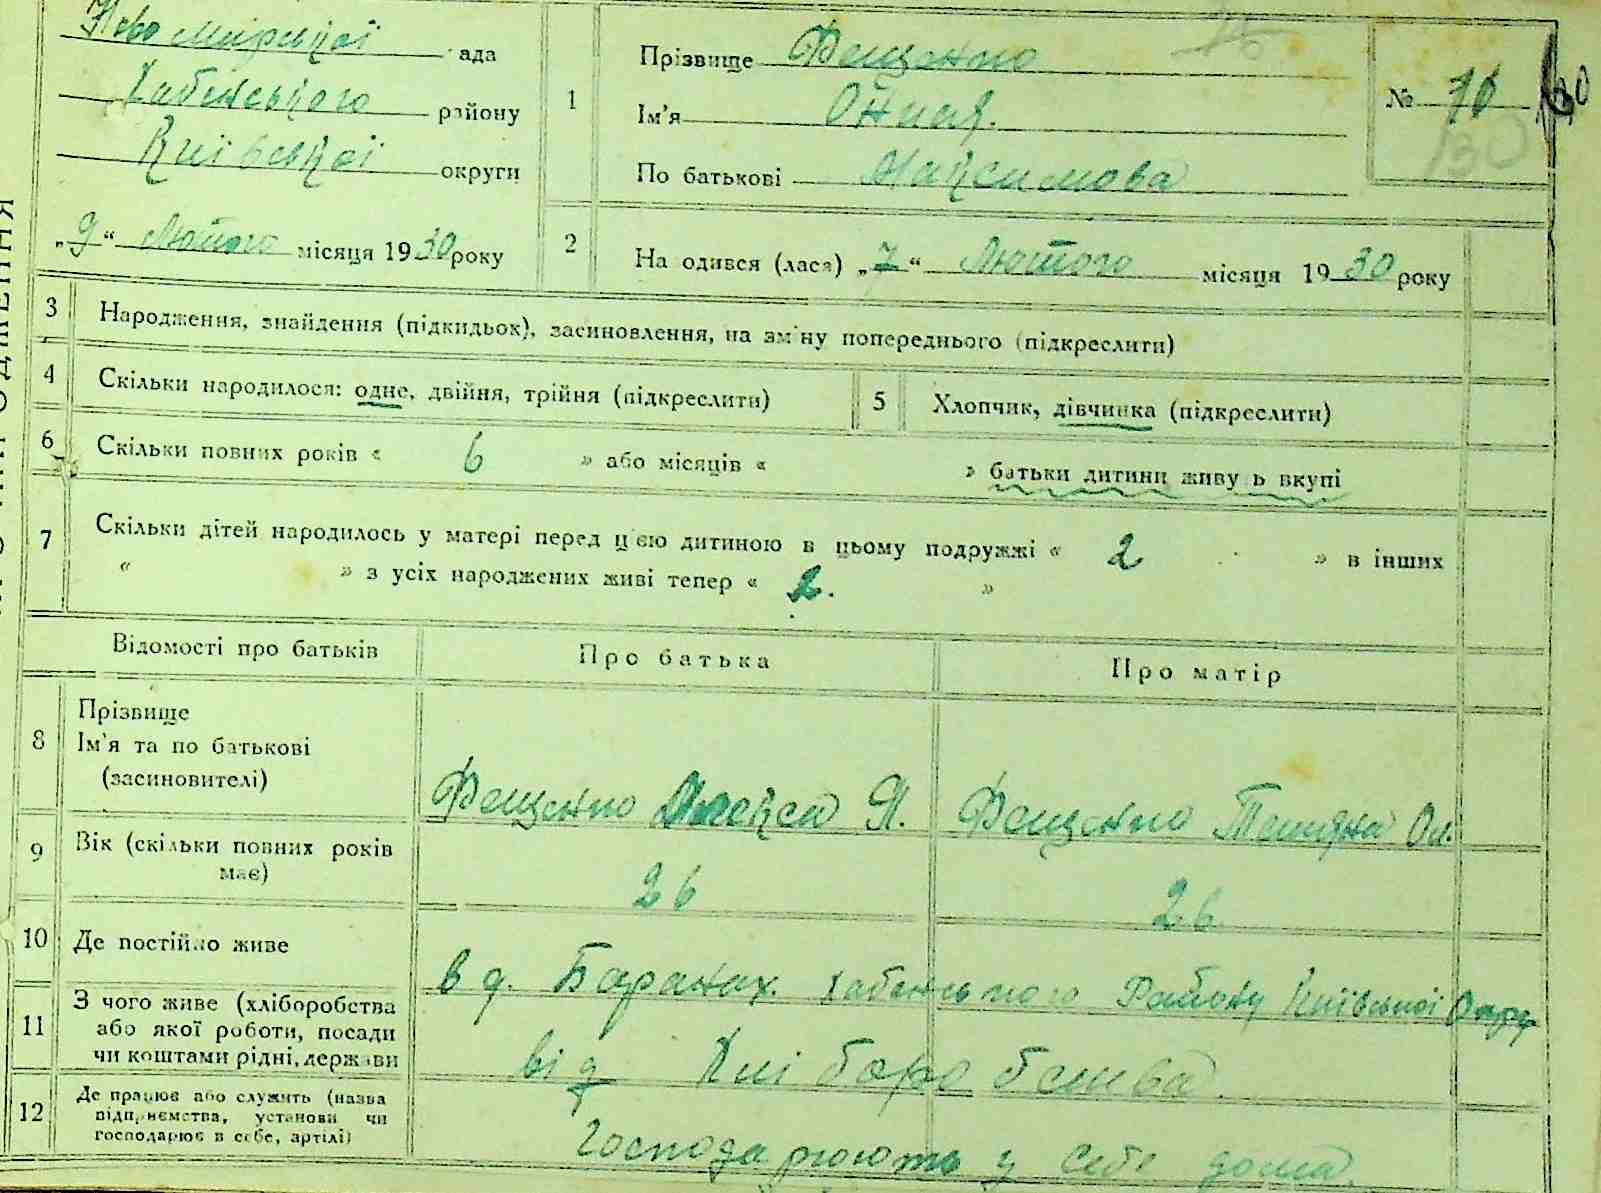 Ново Мирської рада
Хабенського району
Київської округи
„9“ Лютого місяця 1930 року
1
Прізвище Фещенко
Ім'я
По батькові Максимова
№ 10
130
2
На одився (лася) „7“ Лютого місяця 1930 року
3 Народження, знайдення (підкидьок), засиновлення, на зміну попереднього (підкреслити)
4 Скільки народилося: одне, двійня, трійня (підкреслити)
5 Хлопчик, дівчинка (підкреслити)
6 Скільки повних років « 6 » або місяців « » батьки дитини живу ь вкупі
7 Скільки дітей народилось у матері перед цією дитиною в цьому подружжі « 2 » в інших
« » з усіх народжених живі тепер « 2. »
Відомості про батьків
Про батька
Про матір
8 Прізвище
Ім'я та по батькові
(засиновителі)
Фещенко П.
Фещенко Тетяна Ол.
9 Вік (скільки повних років
має)
26
26
10 Де постійно живе
в д. Баранах. Хабенського Району Київської Окру
11 З чого живе (хліборобства
або якої роботи, посади
чи коштами рідні, держави
від Хліборобства.
12 Де працює або служить (назва
підприємства, установи чи
господарює в себе, артілі)
Господарюють у себе дома.